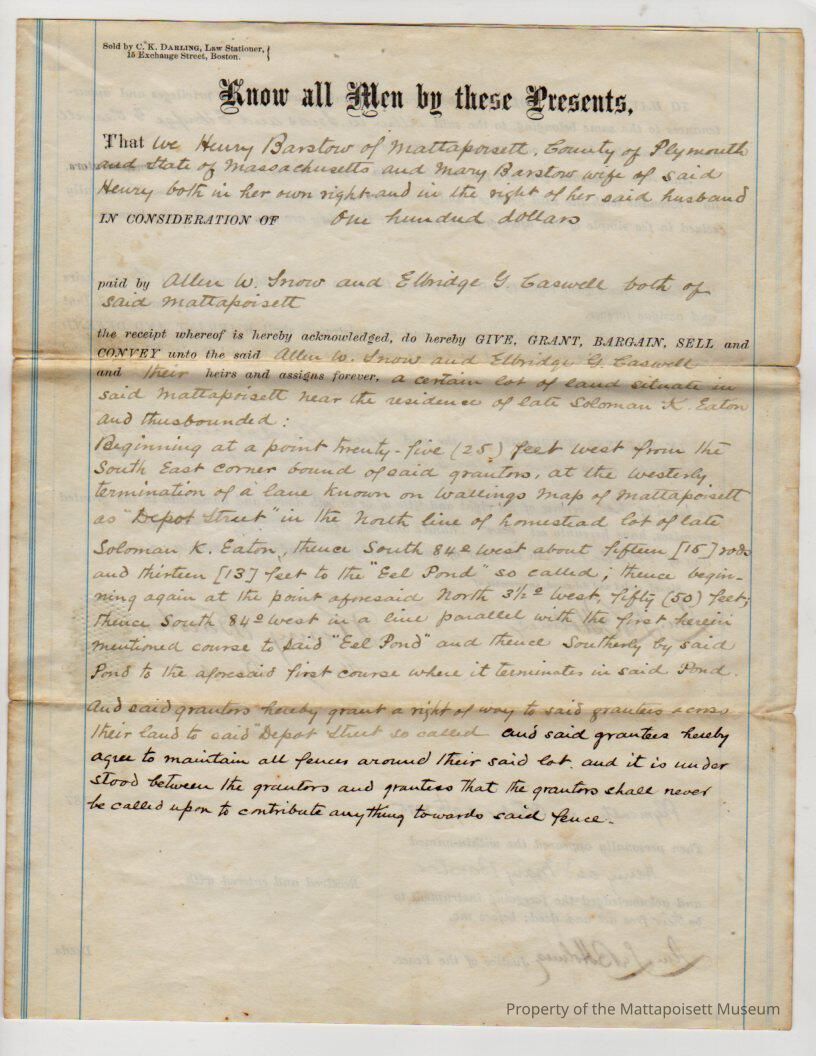 Sold by C. K. DARLING, Law Stationer,
15 Exchange Street, Boston.
Know all Men by these Presents,
That We Henry Barstow of Mattapoisett, County of Plymouth
and State of Massachusetts and Mary Barstow wife of said
Henry both in her own right and in the right of her said husband
IN CONSIDERATION OF One hundred dollars
paid by Allen W. Snow and Elbridge G. Caswell both of
said Mattapoisett
the receipt whereof is hereby acknowledged, do hereby GIVE, GRANT, BARGAIN, SELL and
CONVEY unto the said Allen W. Snow and Elbridge G. Caswell
and their heirs and assigns forever, a certain lot of land situate in
said Mattapoisett near the residence of late Soloman K. Eaton
and thusbounded:
Beginning at a point twenty-five (25) feet West from the
South East corner bound of said grantors, at the Westerly
termination of a lane known on Wallings Map of Mattapoisett
as "Depot Street" in the North line of homestead lot of late
Soloman K. Eaton, thence South 84º West about fifteen [15] rods
and thirteen [13] feet to the "Eel Pond" so called; thence begin-
ning again at the point aforesaid North 3½º West, fifty (50) feet;
thence South 84º West in a line parallel with the first herein
mentioned course to said "Eel Pond" and thence Southerly by said
Pond to the aforesaid first course where it terminates in said Pond.
And said grantors hereby grant a right of way to said grantees across
their land to said "Depot Street so called and said grantees hereby
agree to maintain all fences around their said lot. and it is under
stood between the grantors and grantees that the grantors shall never
be called upon to contribute anything towards said fence.
Property of the Mattapoisett Museum